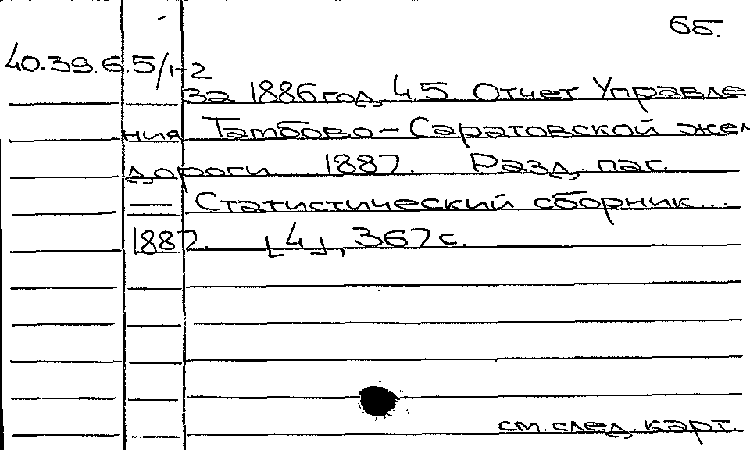 65.
40.39.6.5/1-2
за 1886 год. Ч.5 Отчет Управле
ния Тамбово-Саратовской жел
дороги 1887. Разд. паг.
— Статистический сборник...
1887. [4], 367 с.
см. след. карт.